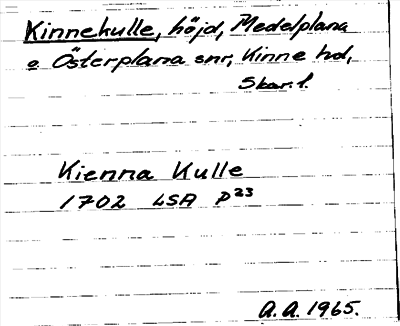 Kinnekulle, höjd, Medelplana
o Österplana snr, Kinne hd,
Skar. l.
Kienna Kulle
1702 LSA P23
A.A. 1965.